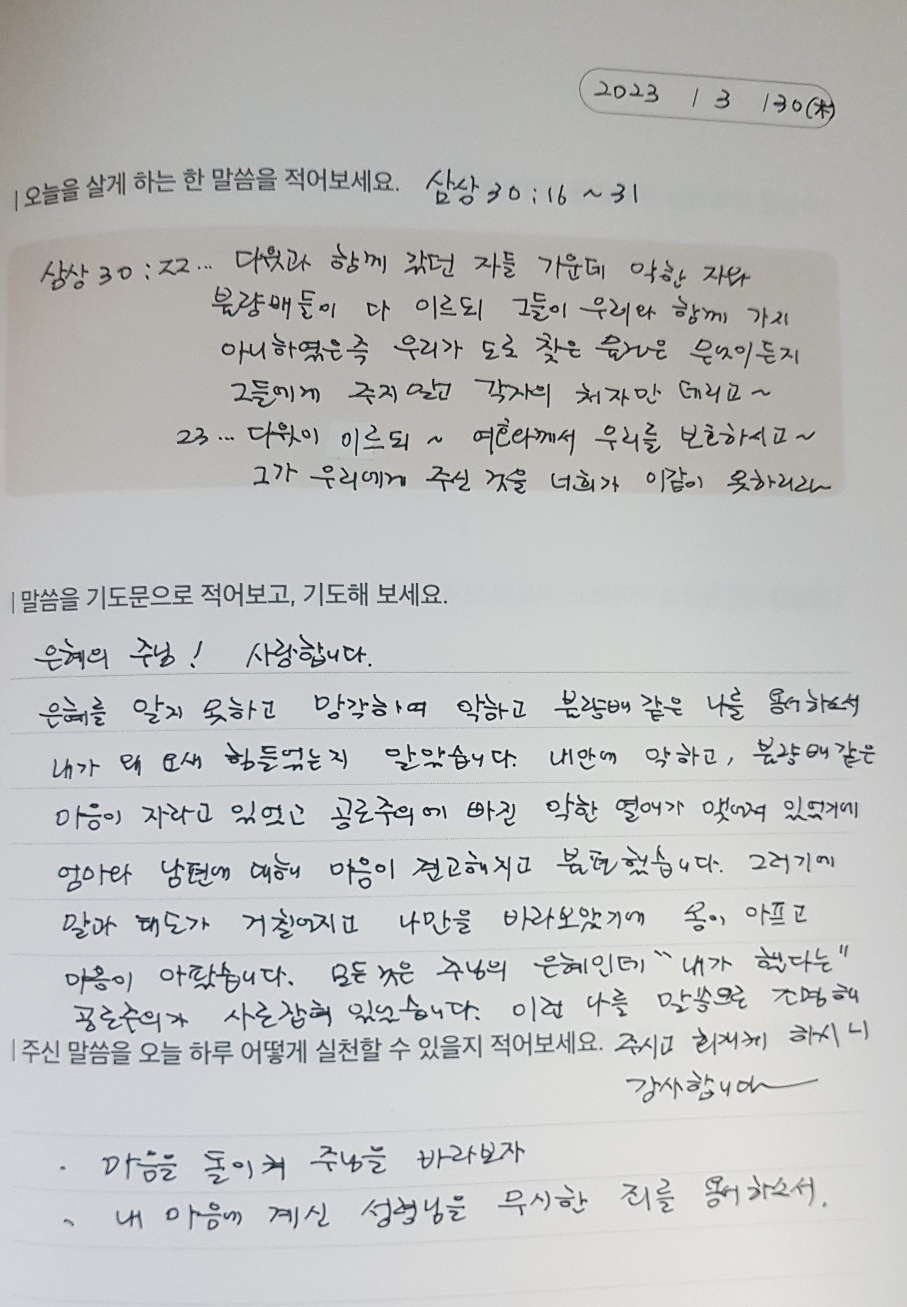 2023 / 3 /30(木)
|오늘을 살게 하는 한 말씀을 적어보세요. 삼상 30:16 ~ 31
삼상 30:22... 다윗과 함께 갔던 자들 가운데 악한 자와
불량배들이 다 이르되 그들이 우리와 함께 가지
아니하였은즉 우리가 도로 찾은 물건은 무엇이든지
그들에게 주지말고 각자의 처자만 데리고~
23... 다윗이 이르되 ~ 여호와께서 우리를 보호하시고~
그가 우리에게 주신 것을 너희가 이같이 못하리라~
|말씀을 기도문으로 적어보고, 기도해 보세요.
은혜의 주님! 사랑합니다.
은혜를 알지 못하고 망각하며 악하고 불량배 같은 나를 용서하소서
내가 왜 요새 힘들었는지 알았습니다. 내안에 악하고, 불량배 같은
마음이 자라고 있었고 공로주의에 빠진 악한 열매가 맺어져 있었기에
엄마와 남편에 대해 마음이 견고해지고 불편했습니다. 그러기에
말과 태도가 거칠어지고 나만을 바라보았기에 몸이 아프고
마음이 아팠습니다. 모든 것은 주님의 은혜인데 "내가 했다는"
공로주의가 사로잡혀 있었습니다. 이런 나를 말씀으로 조명해
|주신 말씀을 오늘 하루 어떻게 실천할 수 있을지 적어보세요. 주시고 회개케 하시니
감사합니다
· 마음을 돌이켜 주님을 바라보자
· 내 마음에 계신 성령님을 무시한 죄를 용서하소서.